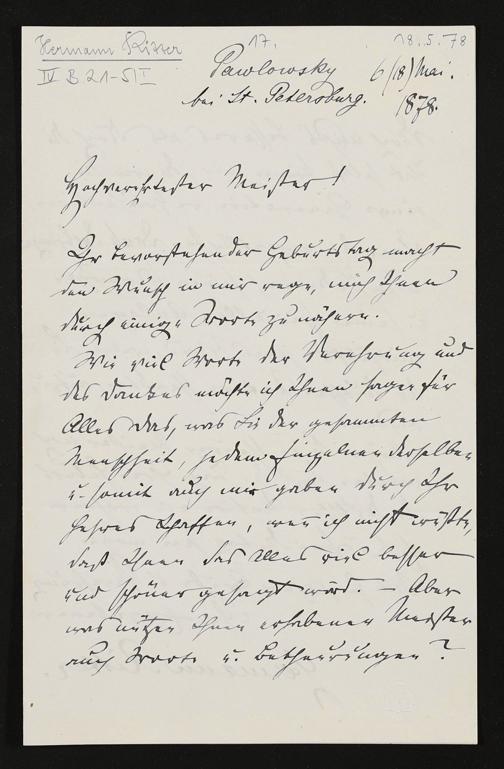 Hermann Ritter
17.
18.5.78
IV B 21-5 I
Pawlowsky 6/(18) Mai.
bei St. Petersburg. 1878.
Hochverehrtester Meister!
Ihr bevorstehender Geburtstag macht
den Wunsch in mir rege, mich Ihnen
durch einige Worte zu nähern.
Wie viel Worte der Verehrung und
des Dankes möchte ich Ihnen sagen für
Alles das, was Sie der gesammten
Menschheit, jedem Einzelnen derselben
u. somit auch mir gaben durch Ihr
hehres Schaffen, wenn ich nicht wüßte,
daß Ihnen das Alles viel besser
und schöner gesagt wird. – Aber
was nützen Ihnen erhabener Meister
auch Worte u. Betheurungen?